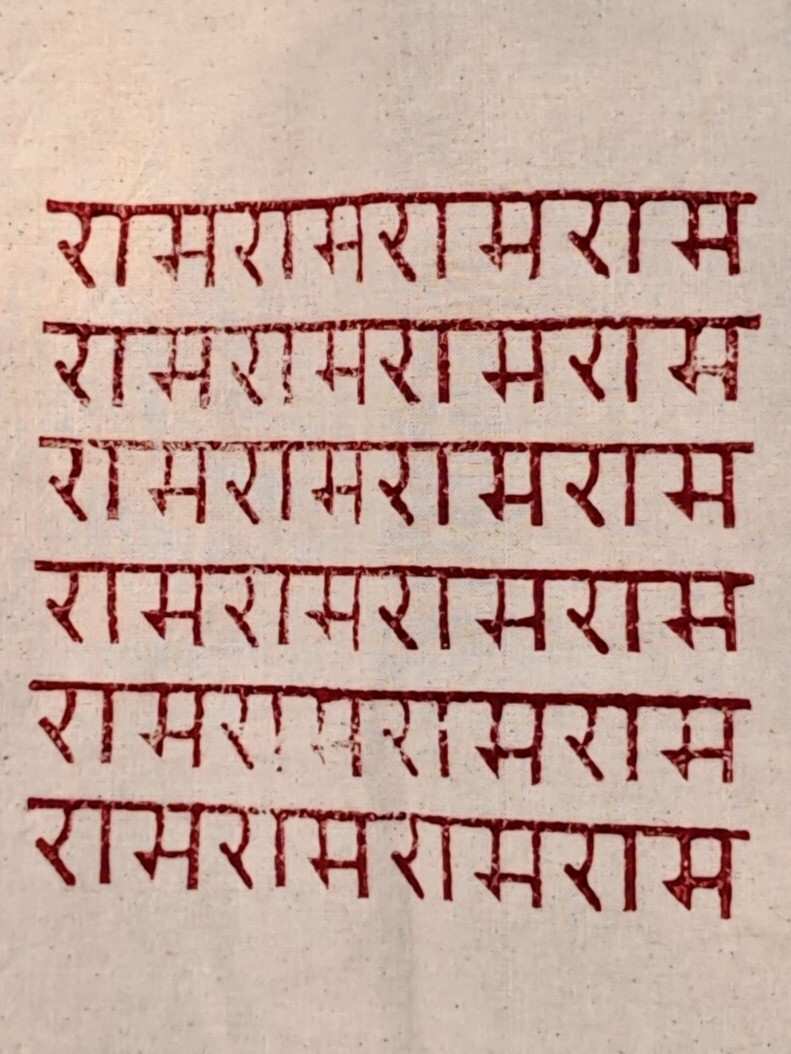 रामरामरामराम
रामरामरामराम
रामरामरामराम
रामरामरामराम
रामरामरामराम
रामरामरामराम